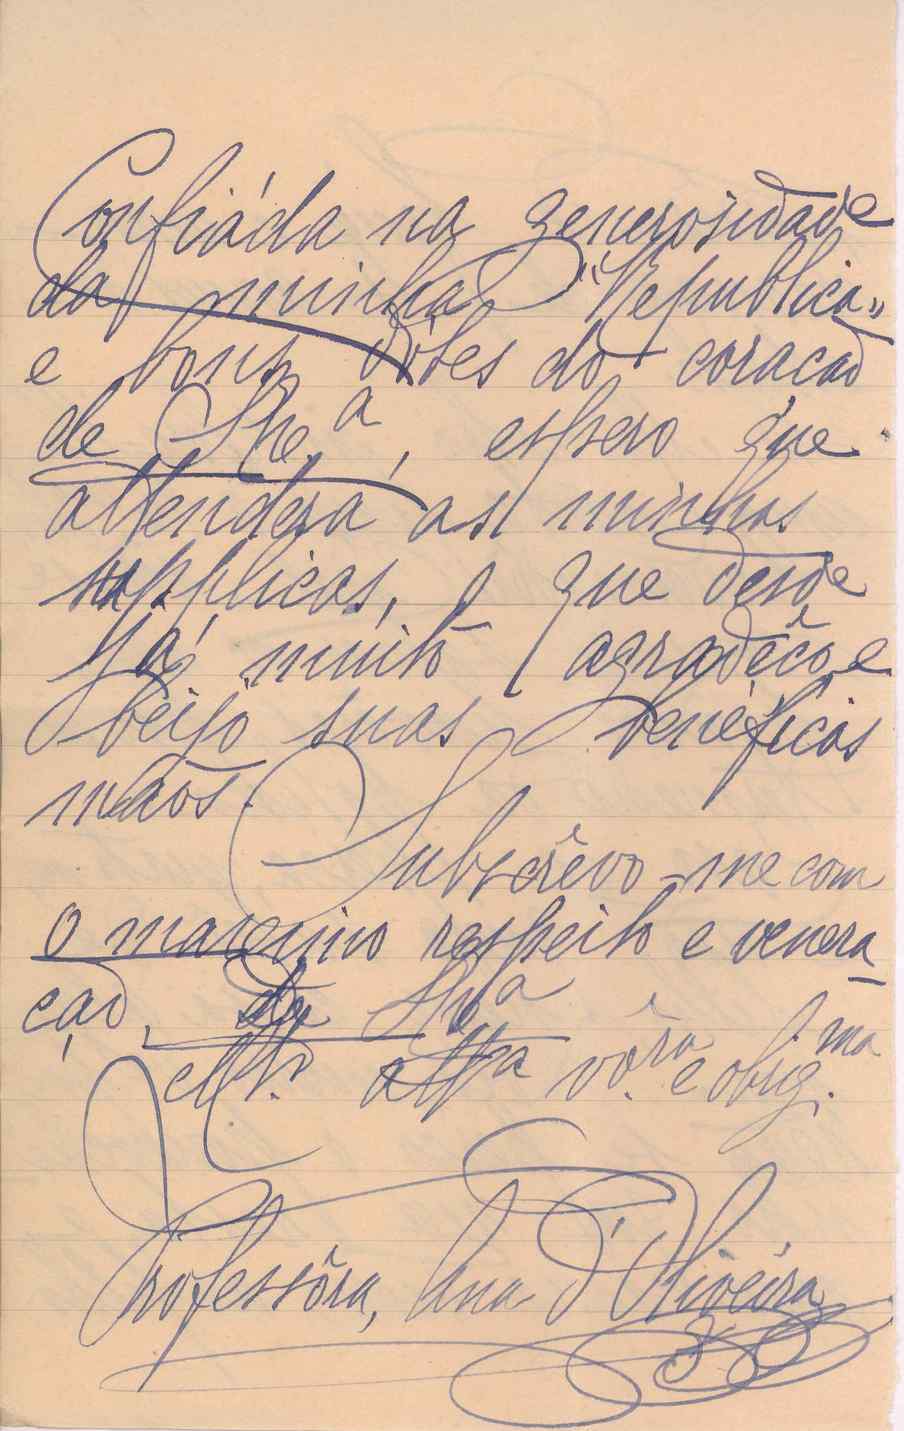 Confiáda na generosidade
da minha "Republica"
e bons dótes do coracaõ
de Sñe.ª, espero que
attenderá as minhas
supplicas, o que desde
já muito agradêço, e
beijo suas benéficas
mãos.
Subscrêvo-me com
o maximo respeito e venera-
çaõ, De
attª vôra. e obrig.ma
Professôra, Ana d'Oliveira